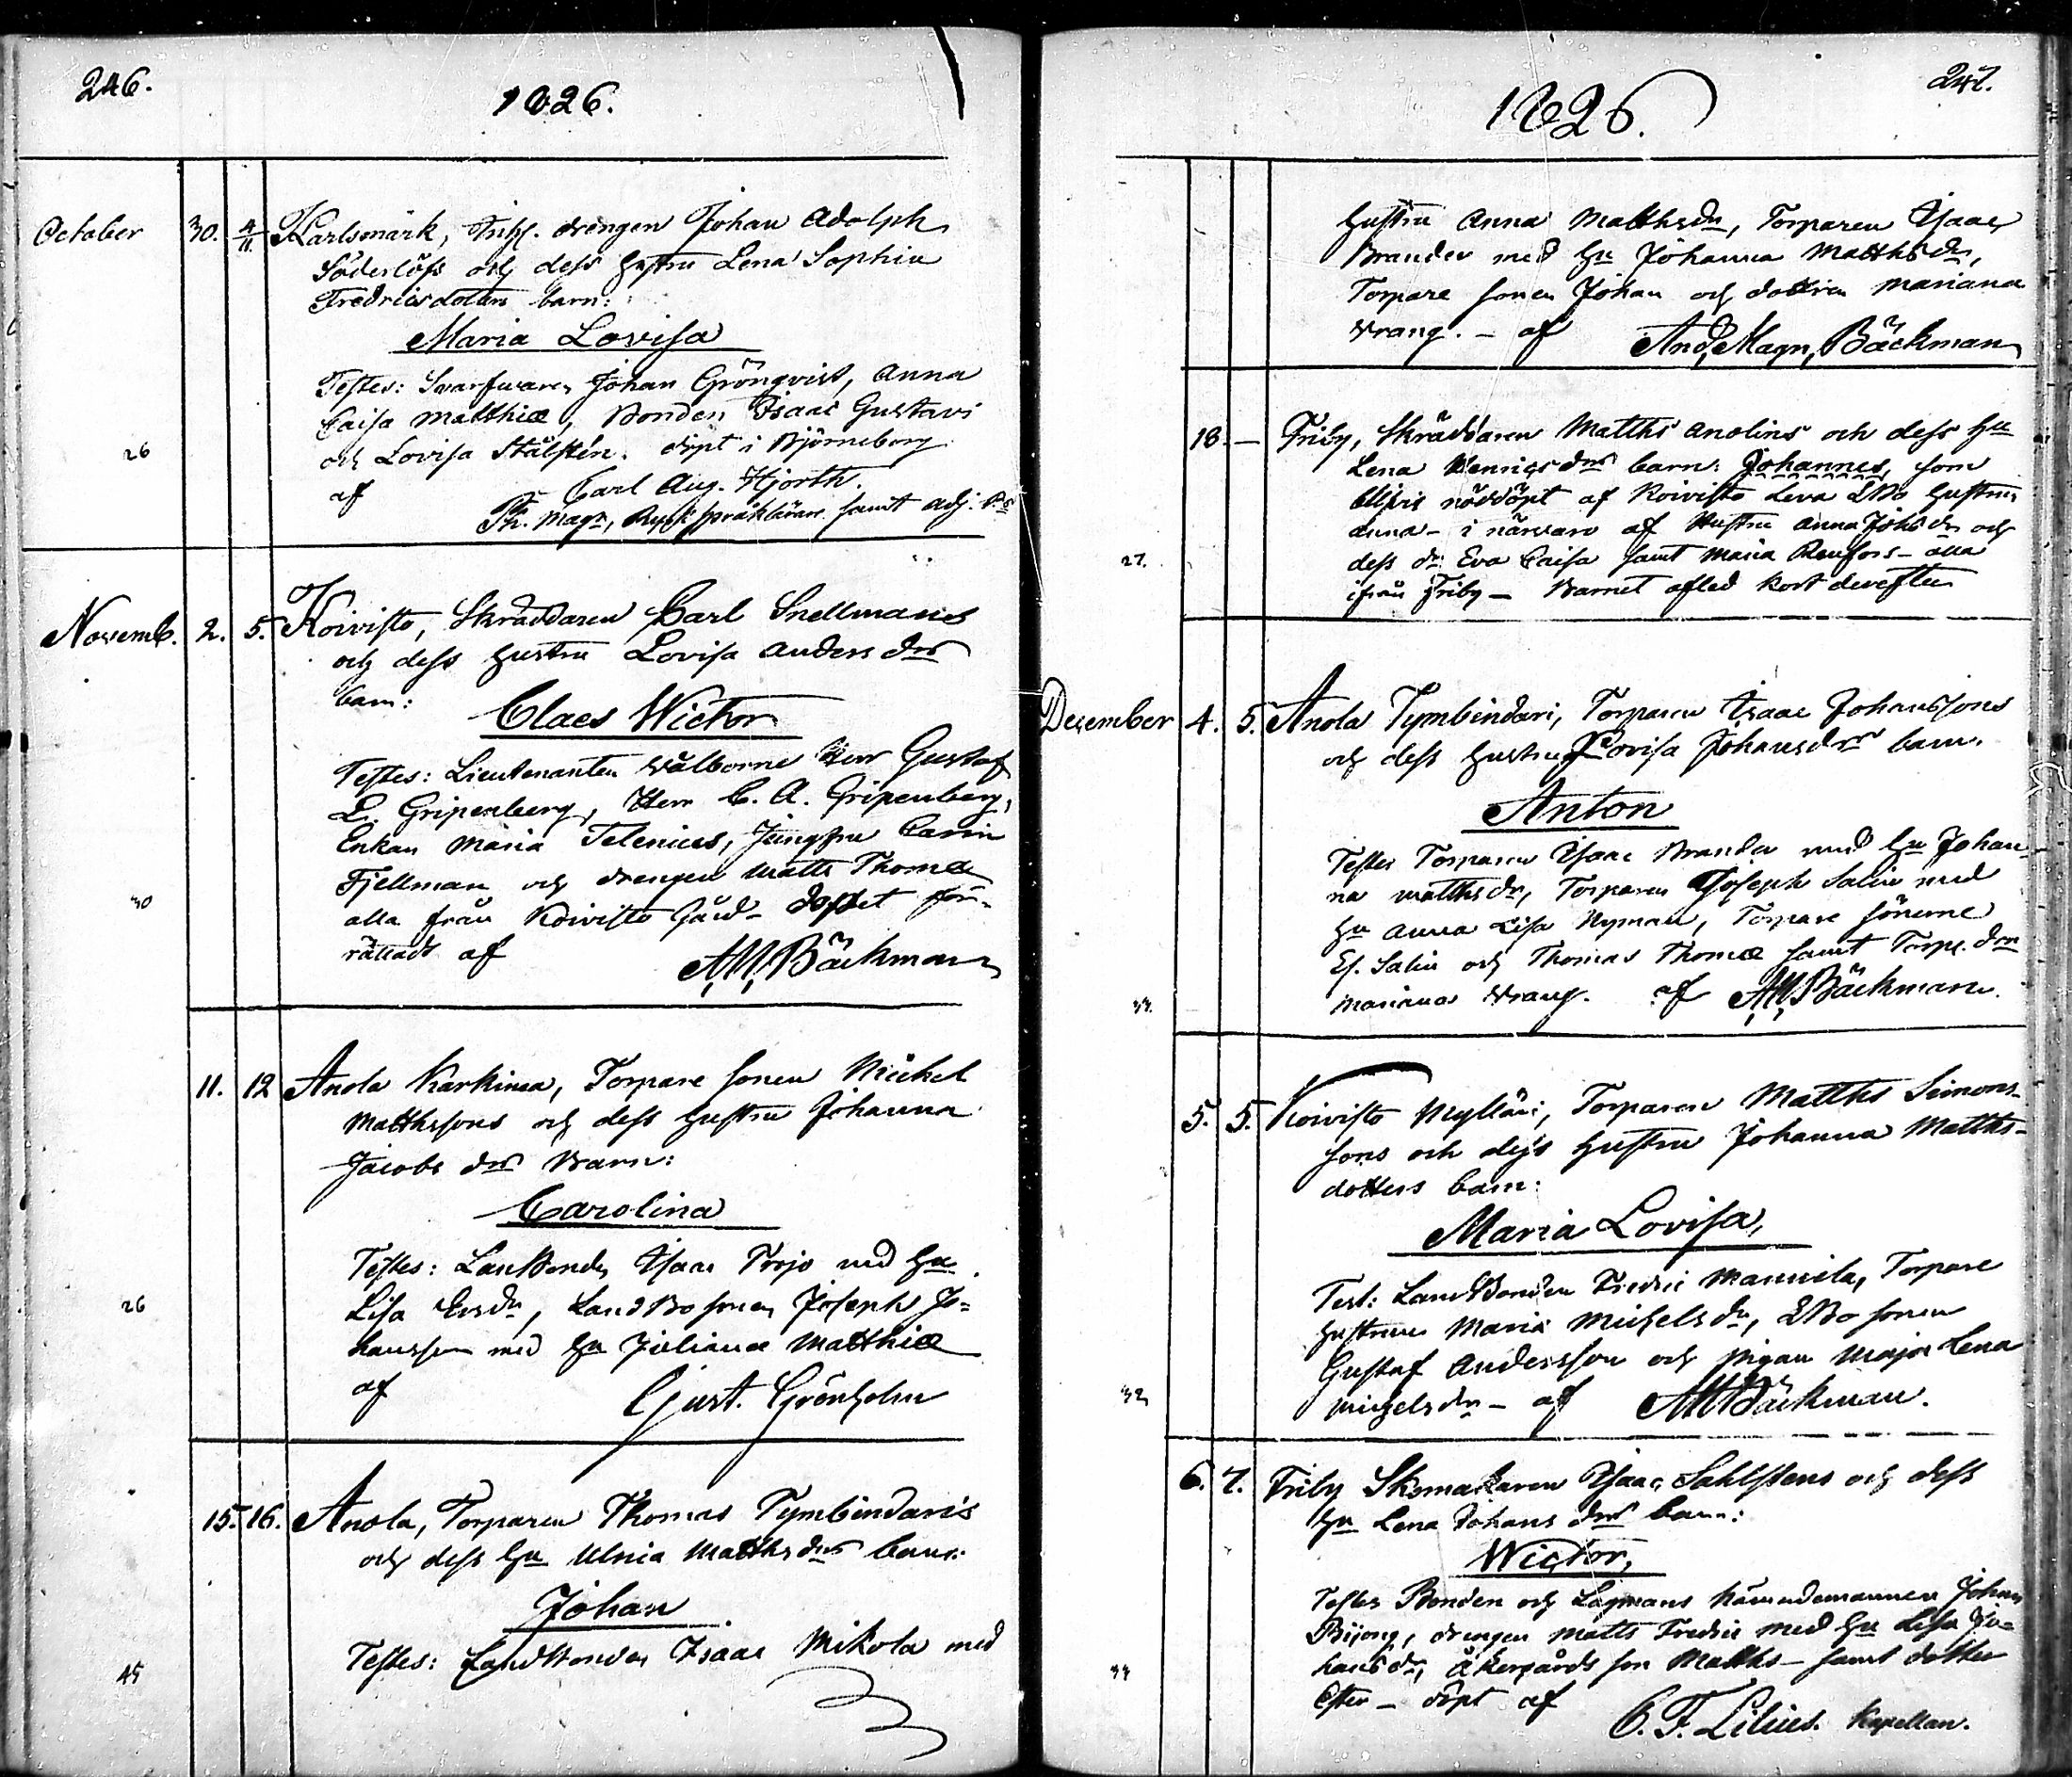 246.
1826.
October 30. 4/11. Karlsmark, Inhs. drengen Johan Adolph
Söderlöfs och dess hustru Lena Sophia
Fredricsdotters barn:
Maria Lovisa
Testes: Svarfvaren Johan Grönqvist, Anna
Caisa Matthiæ, Bonden Isaac Gustavi
26
och Lovisa Stålsten. döpt i Björneborg
af Carl Aug. Hjorth.
Ph. Magr, Rysk språklärare samt adj.
Novemb. 2. 5. Koivisto, Skräddaren Carl Snellmans
och dess hustru Lovisa Anders drs
barn:
Claes Wictor
Testes: Lieutenanten Välborne Herr Gustaf
L. Gripenberg, Herr C. A. Gripenberg,
Enkan Maria Telenius, Jungfru Carin
Fjellman och drengen Matts Thomæ
30
alla från Koivisto Gård - dopet för-
rättadt af A,M,Bäckman
11. 12 Anola Karkima, Torpare sonen Michel
Matthssons och dess hustru Johanna
Jacobs drs Barn:
Carolina
Testes: LandBonden Isaac Projo med hu
26
Lisa Ersdr, LandBosonen Joseph Jo=
hansson med hu Juliana Matthiæ
af Gust. Grönholm
15. 16. Anola, Torparen Thomas Tymbindaris
och dess hu Ulrica Matthsdrs barn:
Johan
Testes: Landbonden Isaac Mikola med
45
247.
1826.
hustru Anna Matthsdr, Torparen Isaac
Brander med hu Johanna Matthsdr,
Torpare sonen Johan och dottren Mariana
Wrang. - af And, Magn, Bäckman
18. - Friby, Skräddaren Matths Anolins och dess hu
Lena Henricsdrs barn: Johannes, som
blifvit nöddöpt af Koivisto Leva LBo hustrun
Anna - i närvaro af Hustru Anna Johsdr och
27.
dess dr Eva Caisa samt Maria Renfors - alla
ifrån Friby - Barnet afled kort derefter
December 4. 5. Anola Tymbindari, Torparen Isaac Johanssons
och dess hustru Lovisa Johansdrs barn.
Anton
Testes Torparen Isaac Brander med hu Johan-
na Matthsdr, Torparen Joseph Salin med
hu Anna Lisa Nyman, Torpare sönerne
Es. Salin och Thomas Thomæ samt Torpe. drn
33.
Mariana Wrang. af AMBäckman.
5. 5. Koivisto Mylläri, Torparen Matths Simons-
sons och dess hustru Johanna Matths-
dotters barn:
Maria Lovisa,
Test: LandBonden Fredric Mannila, Torpare
hustrun Maria Michelsdr, LBo sonen
Gustaf Andersson och pigan Maja Lena
32
Michelsdr - af AMBäckman.
6. 7. Friby Skomakaren Isaac Sahlstens och dess
hu Lena Johans drs barn:
Wictor,
Testes Bonden och Lagmans nämndemannen Johan
Bijong, drengen Matts Fredric med hu Lisa Jo-
33
hansdr, Åkergårds son Matths - samt dotter
Ester - döpt af
C. F. Lilius. Kapellan.